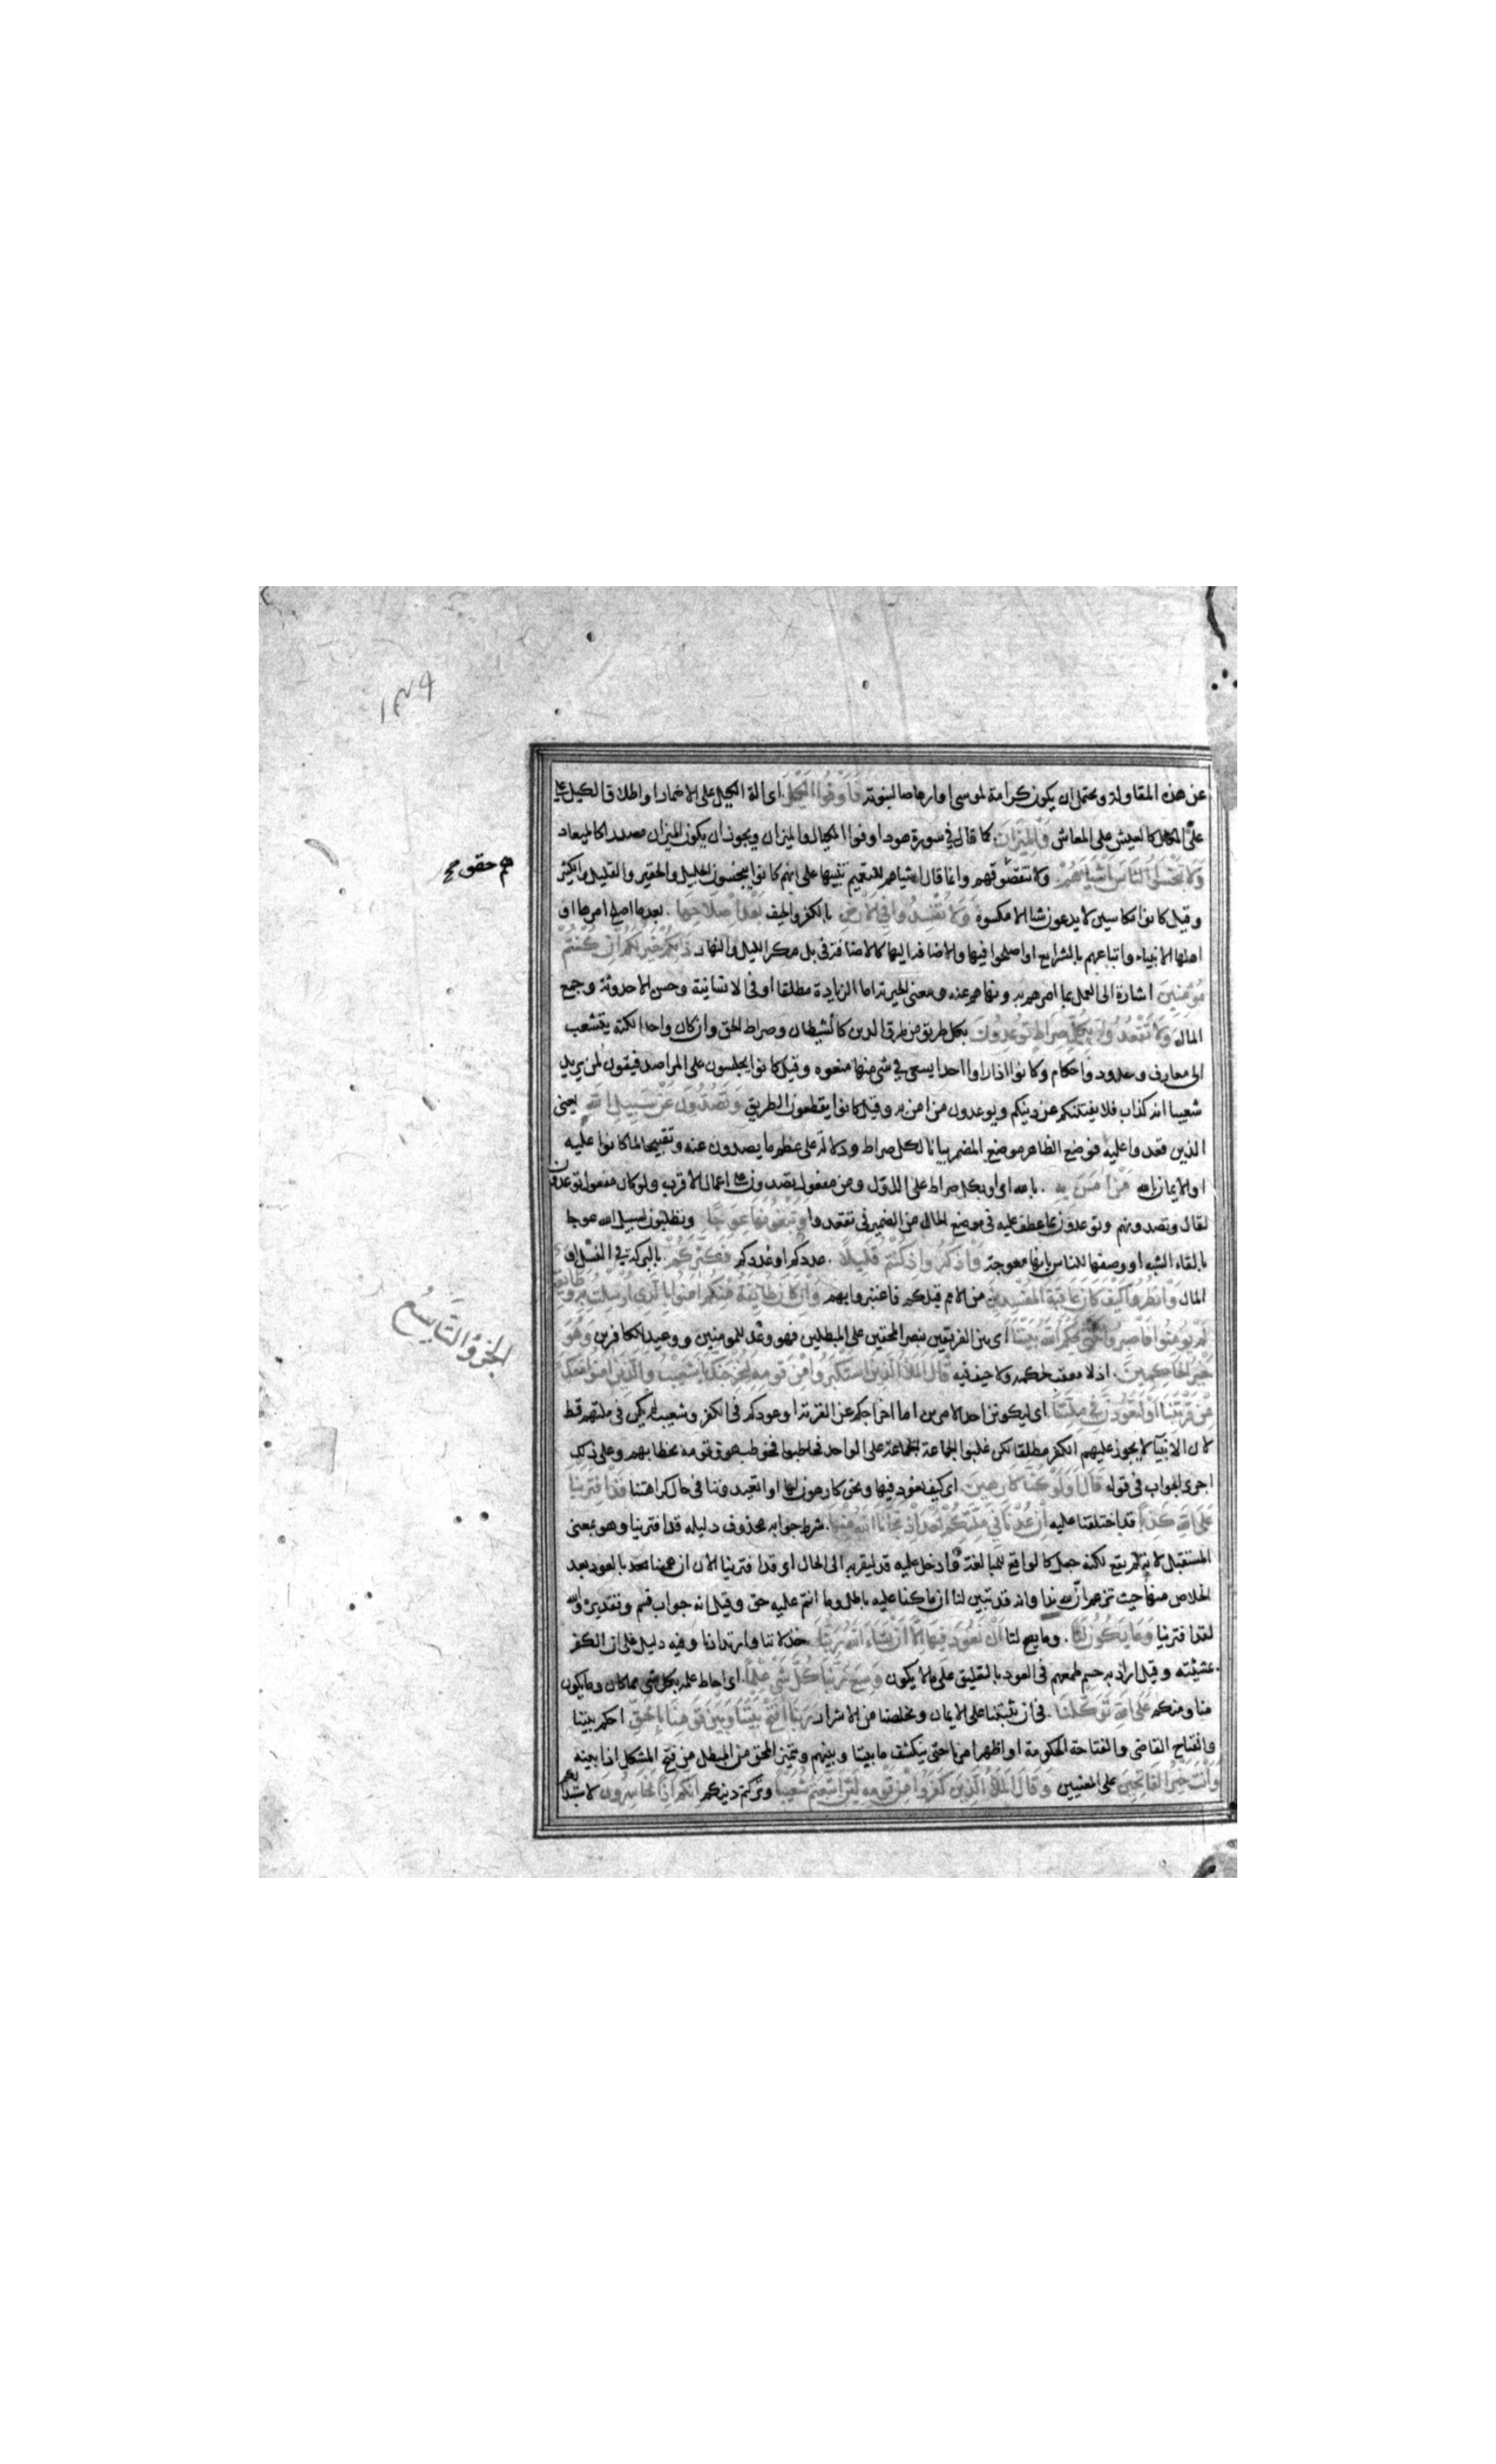 ١٣٩
عن هذه المقاولة ويحتمل ان يكون كرامة لموسى او ارهاصا لنبوته فَاَوْفُوا الكَيْلَ اى الة الكيل على الاضمار او اطلاق الكيل على
على المكيال كالعيش على المعاش وَالْمِيزَانَ كما قال في سورة هود اوفوا المكيال والميزان ويجوز ان يكون الميزان مصدرا كالميعاد
وَلَا تَبْخَسُوا النَّاسَ اَشْيَاءَهُمْ ولا تنقصوقهم وانما قال اشياءهم للتعميم تنبيها على انهم كانوا يبخسون الجليل والحقير والقليل والكثير
هم حقو صح
وقيل كانوا مكاسين لا يدعون شيا الا مكسوه وَلَا تُفْسِدُوا فِي الْاَرْضِ بالكفر والحيف بَعْدَ اِصْلَاحِهَا بعد ما اصلح امرها او
اهلها الانبياء واتباعهم بالشرايع او اصلحوا فيها والاضافة اليها كالاضافة في بل مكر الليل والنهار ذٰلِكُمْ خَيْرٌ لَكُمْ اِنْ كُنْتُمْ
مُؤْمِنِينَ اشارة الى العمل بما امرهم به ونهاهم عنه ومعنى الخيرية اما الزيادة مطلقا او في الانسانية وحسن الاحدوثة وجمع
المال وَلَا تَقْعُدُوا بِكُلِّ صِرَاطٍ تُوعِدُونَ بكل طريق من طرق الدين كالشيطان وصراط الحق وان كان واحدا لكنه يتشعب
الى معارف وحدود واحكام وكانوا اذا راوا احدا يسعى في شئ منها منعوه وقيل كانوا يجلسون على المراصد فيقولون لمن يريد
شعيبا انه كذاب فلا يفتنكم عن دينكم ويوعدون من امن به وقيل كانوا يقطعون الطريق وَتَصُدُّونَ عَنْ سَبِيلِ اللهِ يعنى
الذين قعدوا عليه فوضع الظاهر موضع المضمر بيانا لكل صراط ودلالة على عظم ما يصدون عنه وتقبيحا لما كانوا عليه
او الايمان بالله مَنْ اٰمَنَ بِهِ بالله اى او بكل صراط على الاول ومن مفعول تصدون على اعمال الاقرب ولو كان مفعول توعدون
لقال وتصدونهم وتوعدون بما عطف عليه في موضع الحال من الضمير في تقعدوا وَتَبْغُونَهَا عِوَجًا وتطلبون لسبيل الله عوجا
بالقاء الشبه او وصفها للناس بانها معوجة وَاذْكُرُوا اِذْ كُنْتُمْ قَلِيلًا عددكم او عُددكم فَكَثَّرَكُمْ بالبركة في النسل او
المال وَانْظُرُوا كَيْفَ كَانَ عَاقِبَةُ الْمُفْسِدِينَ من الامم قبلكم فاعتبروا بهم وَاِنْ كَانَ طَائِفَةٌ مِنْكُمْ اٰمَنُوا بِالَّذِي اُرْسِلْتُ بِهِ وَطَائِفَةٌ
لَمْ يُؤْمِنُوا فَاصْبِرُوا حَتّٰى يَحْكُمَ اللهُ بَيْنَنَا اى بين الفريقين بنصر المحقين على المبطلين فهو وعد للمومنين ووعيد للكافرين وَهُوَ
خَيْرُ الْحَاكِمِينَ اذ لا معقب لحكمه ولا حيف فيه قَالَ الْمَلَأُ الَّذِينَ اسْتَكْبَرُوا مِنْ قَوْمِهِ لَنُخْرِجَنَّكَ يَا شُعَيْبُ وَالَّذِينَ اٰمَنُوا مَعَكَ
الجزؤ التاسع
مِنْ قَرْيَتِنَا اَوْ لَتَعُودُنَّ فِي مِلَّتِنَا اى ليكونن احد الامرين اما اخراجكم عن القرية او عودكم في الكفر وشعيب لم يكن في ملتهم قط
لان الانبيآ لا يجوز عليهم الكفر مطلقا لكن غلبوا الجماعة على الواحد فخاطبوا فخوطب هو وقومه بخطابهم وعلى ذلك
اجرى الجواب في قوله قَالَ اَوَلَوْ كُنَّا كَارِهِينَ اى كيف نعود فيها ونحن كارهون لها او اتعيدوننا في حال كراهتنا قَدِ افْتَرَيْنَا
عَلَى اللهِ كَذِبًا قد اختلقنا عليه اِنْ عُدْنَا فِي مِلَّتِكُمْ بَعْدَ اِذْ نَجَّانَا اللهُ مِنْهَا شرط جوابه محذوف دليله قد افترينا وهو بمعنى
المستقبل لانه لم يقع لكنه جعل كالواقع للمبالغة وادخل عليه قد ليقربه الى الحال اى قد افترينا الان ان هممنا بالعود بعد
الخلاص منها حيث نزعم ان لله ندا وانه قد تبين لنا ان ما كنا عليه باطل وما انتم عليه حق وقيل انه جواب قسم وتقديره والله
لقد افترينا وَمَا يَكُونُ لَنَا وما يصح لنا اَنْ نَعُودَ فِيهَا اِلَّا اَنْ يَشَاءَ اللهُ رَبُّنَا خذلاننا وارتدادنا وفيه دليل على ان الكفر
بمشيئته وقيل اراد به حسم طمعهم في العود بالتعليق على ما لا يكون وَسِعَ رَبُّنَا كُلَّ شَيْءٍ عِلْمًا اى احاط علمه بكل شئ مما كان وما يكون
منا ومنكم عَلَى اللهِ تَوَكَّلْنَا في ان يثبتنا على الايمان ويخلصنا من الاشرار رَبَّنَا افْتَحْ بَيْنَنَا وَبَيْنَ قَوْمِنَا بِالْحَقِّ احكم بيننا
والفتاح القاضى والفتاحة الحكومة او اظهر امرنا حتى ينكشف ما بيننا وبينهم ويتميز المحق من المبطل من فتح المشكل اذا بينه
وَاَنْتَ خَيْرُ الْفَاتِحِينَ على المعنيين وَقَالَ الْمَلَأُ الَّذِينَ كَفَرُوا مِنْ قَوْمِهِ لَئِنِ اتَّبَعْتُمْ شُعَيْبًا وتركتم دينكم اِنَّكُمْ اِذًا لَخَاسِرُونَ لاستبدالكم